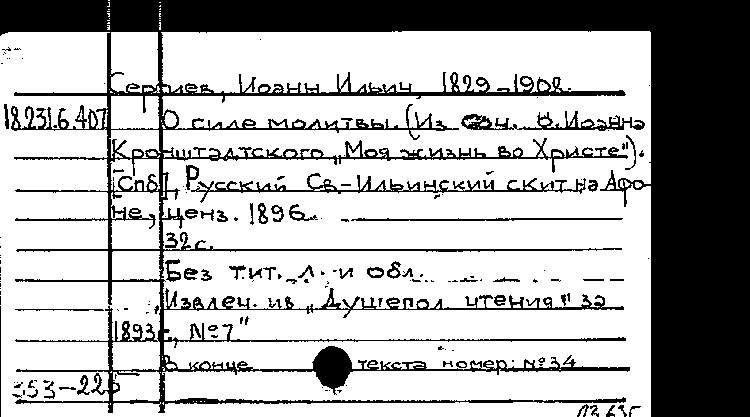 Сергиев, Иоанн Ильич, 1829-1908.
18.231.6.407 О силе молитвы. (Из соч. о. Иоанна
Кронштадтского „Моя жизнь во Христе").
[Спб], Русский Св.-Ильинский скит на Афо-
не, ценз. 1896.
32 с.
Без тит. л. и обл.
„Извлеч. из „Душепол. чтения" за
1893 г., №7"
В конце текста номер: №34
353-225